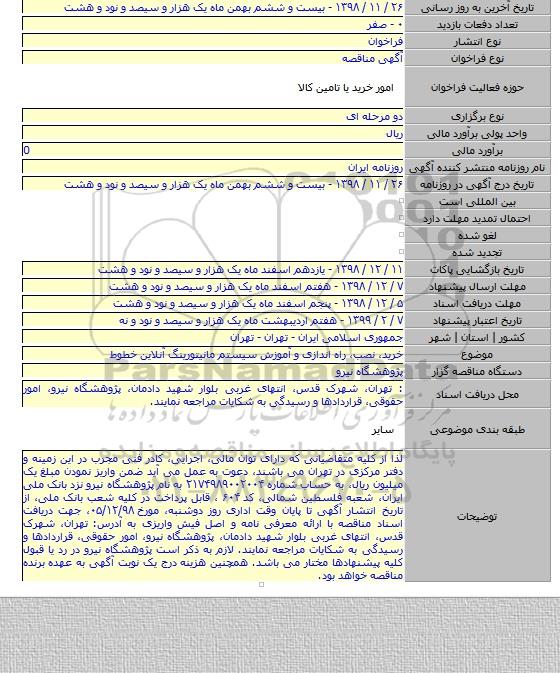 تاریخ آخرین به روز رسانی ۲۶ / ۱۱ / ۱۳۹۸ - بیست و ششم بهمن ماه یک هزار و سیصد و نود و هشت
تعداد دفعات بازدید ۰ - صفر
نوع انتشار فراخوان
نوع فراخوان آگهی مناقصه
حوزه فعالیت فراخوان امور خرید یا تامین کالا
نوع برگزاری دو مرحله ای
واحد پولی برآورد مالی ریال
برآورد مالی 0
نام روزنامه منتشر کننده آگهی روزنامه ایران
تاریخ درج آگهی در روزنامه ۲۶ / ۱۱ / ۱۳۹۸ - بیست و ششم بهمن ماه یک هزار و سیصد و نود و هشت
بین المللی است
احتمال تمدید مهلت دارد
لغو شده
تجدید شده
تاریخ بازگشایی پاکات ۱۱ / ۱۲ / ۱۳۹۸ - یازدهم اسفند ماه یک هزار و سیصد و نود و هشت
مهلت ارسال پیشنهاد ۷ / ۱۲ / ۱۳۹۸ - هفتم اسفند ماه یک هزار و سیصد و نود و هشت
مهلت دریافت اسناد ۵ / ۱۲ / ۱۳۹۸ - پنجم اسفند ماه یک هزار و سیصد و نود و هشت
تاریخ اعتبار پیشنهاد ۷ / ۲ / ۱۳۹۹ - هفتم اردیبهشت ماه یک هزار و سیصد و نود و نه
کشور | استان | شهر جمهوری اسلامی ایران - تهران - تهران
موضوع خرید، نصب، راه اندازی و آموزش سیستم مانیتورینگ آنلاین خطوط
دستگاه مناقصه گزار پژوهشگاه نیرو
محل دریافت اسناد : تهران، شهرک قدس، انتهای غربی بلوار شهید دادمان، پژوهشگاه نیرو، امور
حقوقی، قراردادها و رسیدگی به شکایات مراجعه نمایند.
طبقه بندی موضوعی سایر
توضیحات
لذا از کلیه متقاضیانی که دارای توان مالی، اجرایی، کادر فنی مجرب در این زمینه و
دفتر مرکزی در تهران می باشند، دعوت به عمل می آید ضمن واریز نمودن مبلغ یک
میلیون ریال، به حساب شماره ۲۱۷۴۹۸۹۰۰۲۰۰۴ به نام پژوهشگاه نیرو نزد بانک ملی
ایران، شعبه فلسطین شمالی، کد ۶۰۴ ، قابل پرداخت در کلیه شعب بانک ملی، از
تاریخ انتشار آگهی تا پایان وقت اداری روز دوشنبه، مورخ ۰۵/۱۲/۹۸، جهت دریافت
اسناد مناقصه با ارائه معرفی نامه و اصل فیش واریزی به آدرس: تهران، شهرک
قدس، انتهای غربی بلوار شهید دادمان، پژوهشگاه نیرو، امور حقوقی، قراردادها و
رسیدگی به شکایات مراجعه نمایند. لازم به ذکر است پژوهشگاه نیرو در رد یا قبول
کلیه پیشنهادها مختار می باشد. همچنین هزینه درج یک نوبت آگهی به عهده برنده
مناقصه خواهد بود.